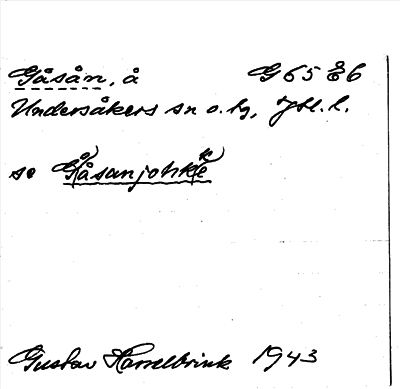 Gåsån, å G 65 å 6
Undersåkers sn o. hg, Jtl. l.
se Gåsanjohke
Gustav Hasselbrink 1943